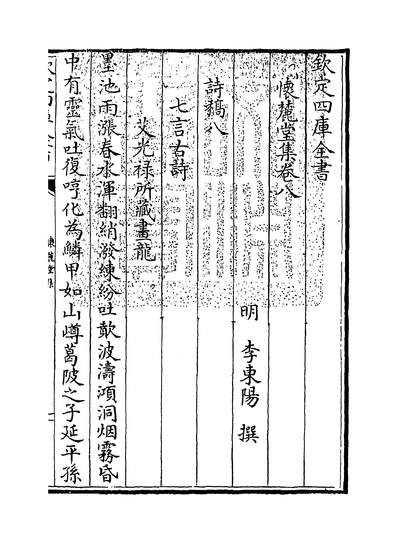 欽定四庫全書
懷麓堂集卷八
明 李東陽 撰
詩稿八
七言古詩
艾光祿所藏畫龍
墨池雨漲春水渾翻綃潑練紛吐歕波濤澒洞烟霧昏
中有靈氣吐復哼化為鱗甲如山蹲葛陂之子延平孫